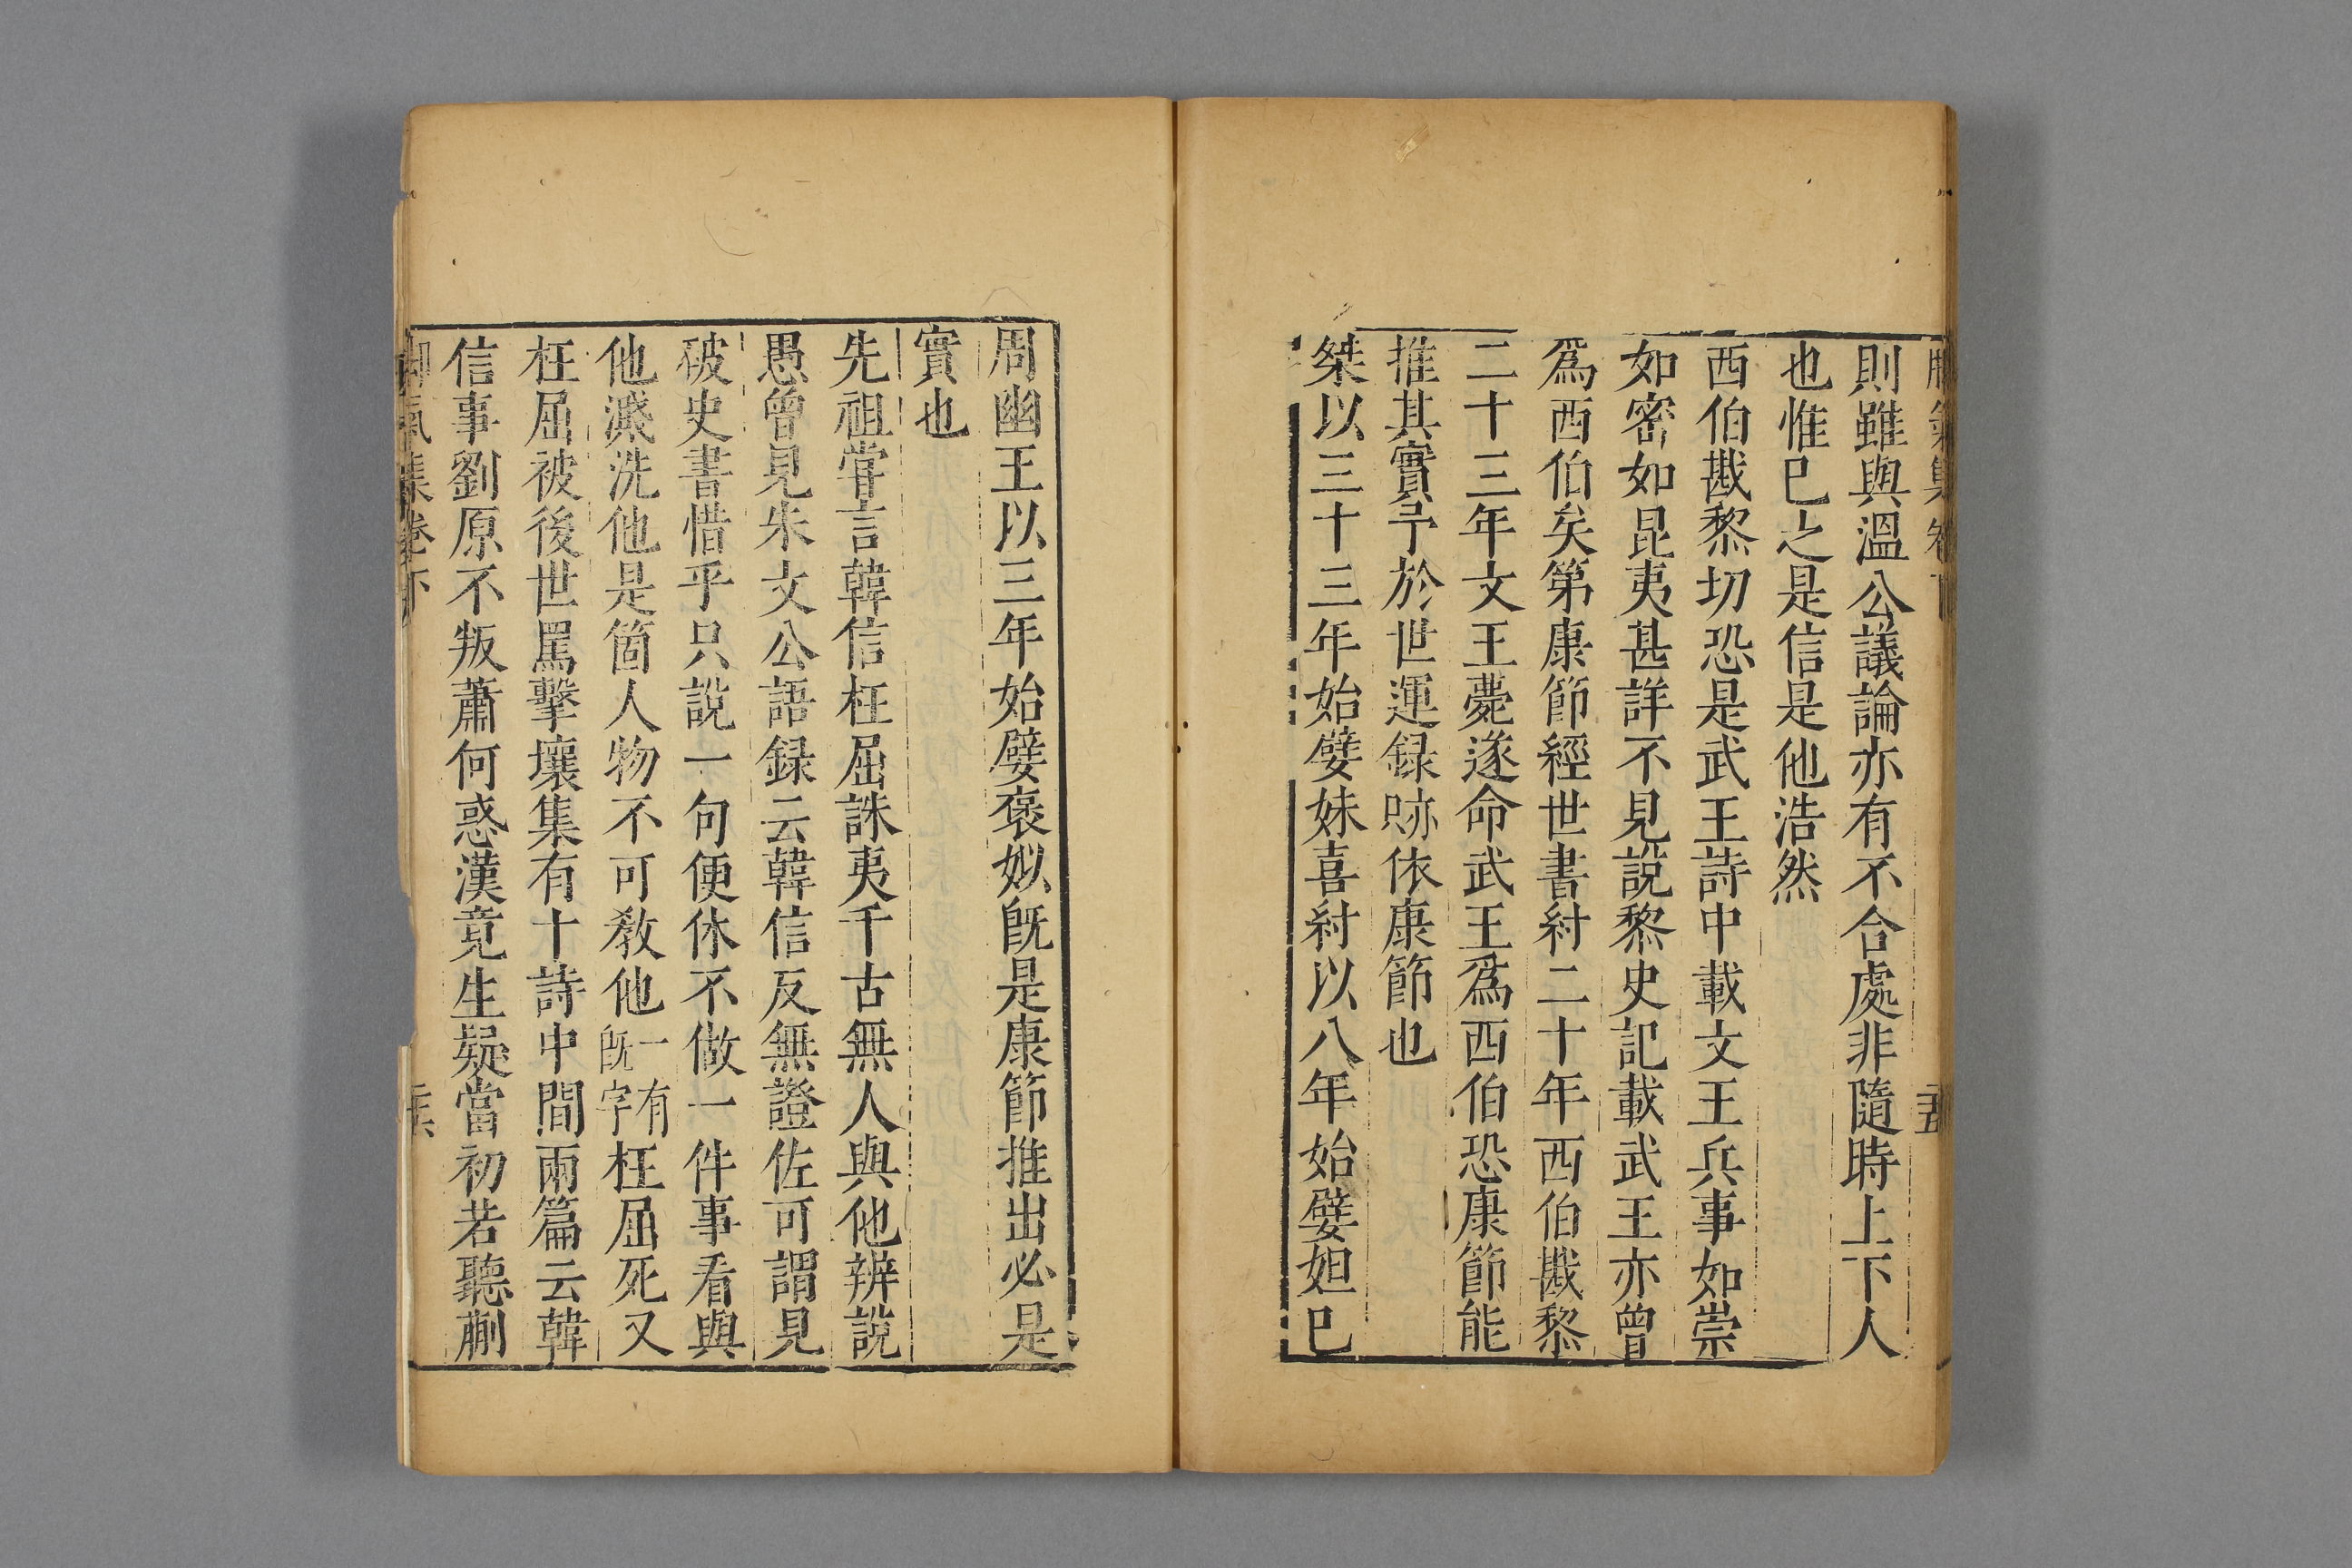 則雖與溫公議論亦有不合處非隨時上下人
也惟巳之是信是他浩然
西伯戡黎切恐是武王詩中載文王兵事如崇
如密如昆夷甚詳不見說黎史記載武王亦曾
爲西伯矣第康節經世書紂二十年西伯戡黎
二十三年文王薨遂命武王爲西伯恐康節能
推其實予於世運録跡依康節也
桀以三十三年始嬖妹喜紂以八年始嬖妲巳
周幽王以三年始嬖褒姒旣是康節推出必是
實也
先祖甞言韓信枉屈誅夷千古無人與他辨說
愚曾見朱文公語録云韓信反無證佐可謂見
破史書惜乎只說一句便休不做一件事看與
他濺洗他是箇人物不可敎他一有旣字枉屈死又
枉屈被後世罵擊壤集有十詩中間兩篇云韓
信事劉原不叛蕭何惑漢竟生疑當初若聽蒯
脚氣集卷下